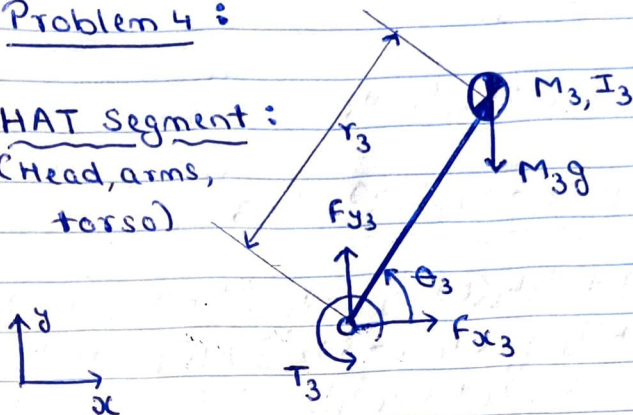 Problem 4 :
HAT segment :
(Head, arms,
torso)
r₃
M₃, I₃
M₃g
Fy₃
θ₃
Fx₃
T₃
y
x